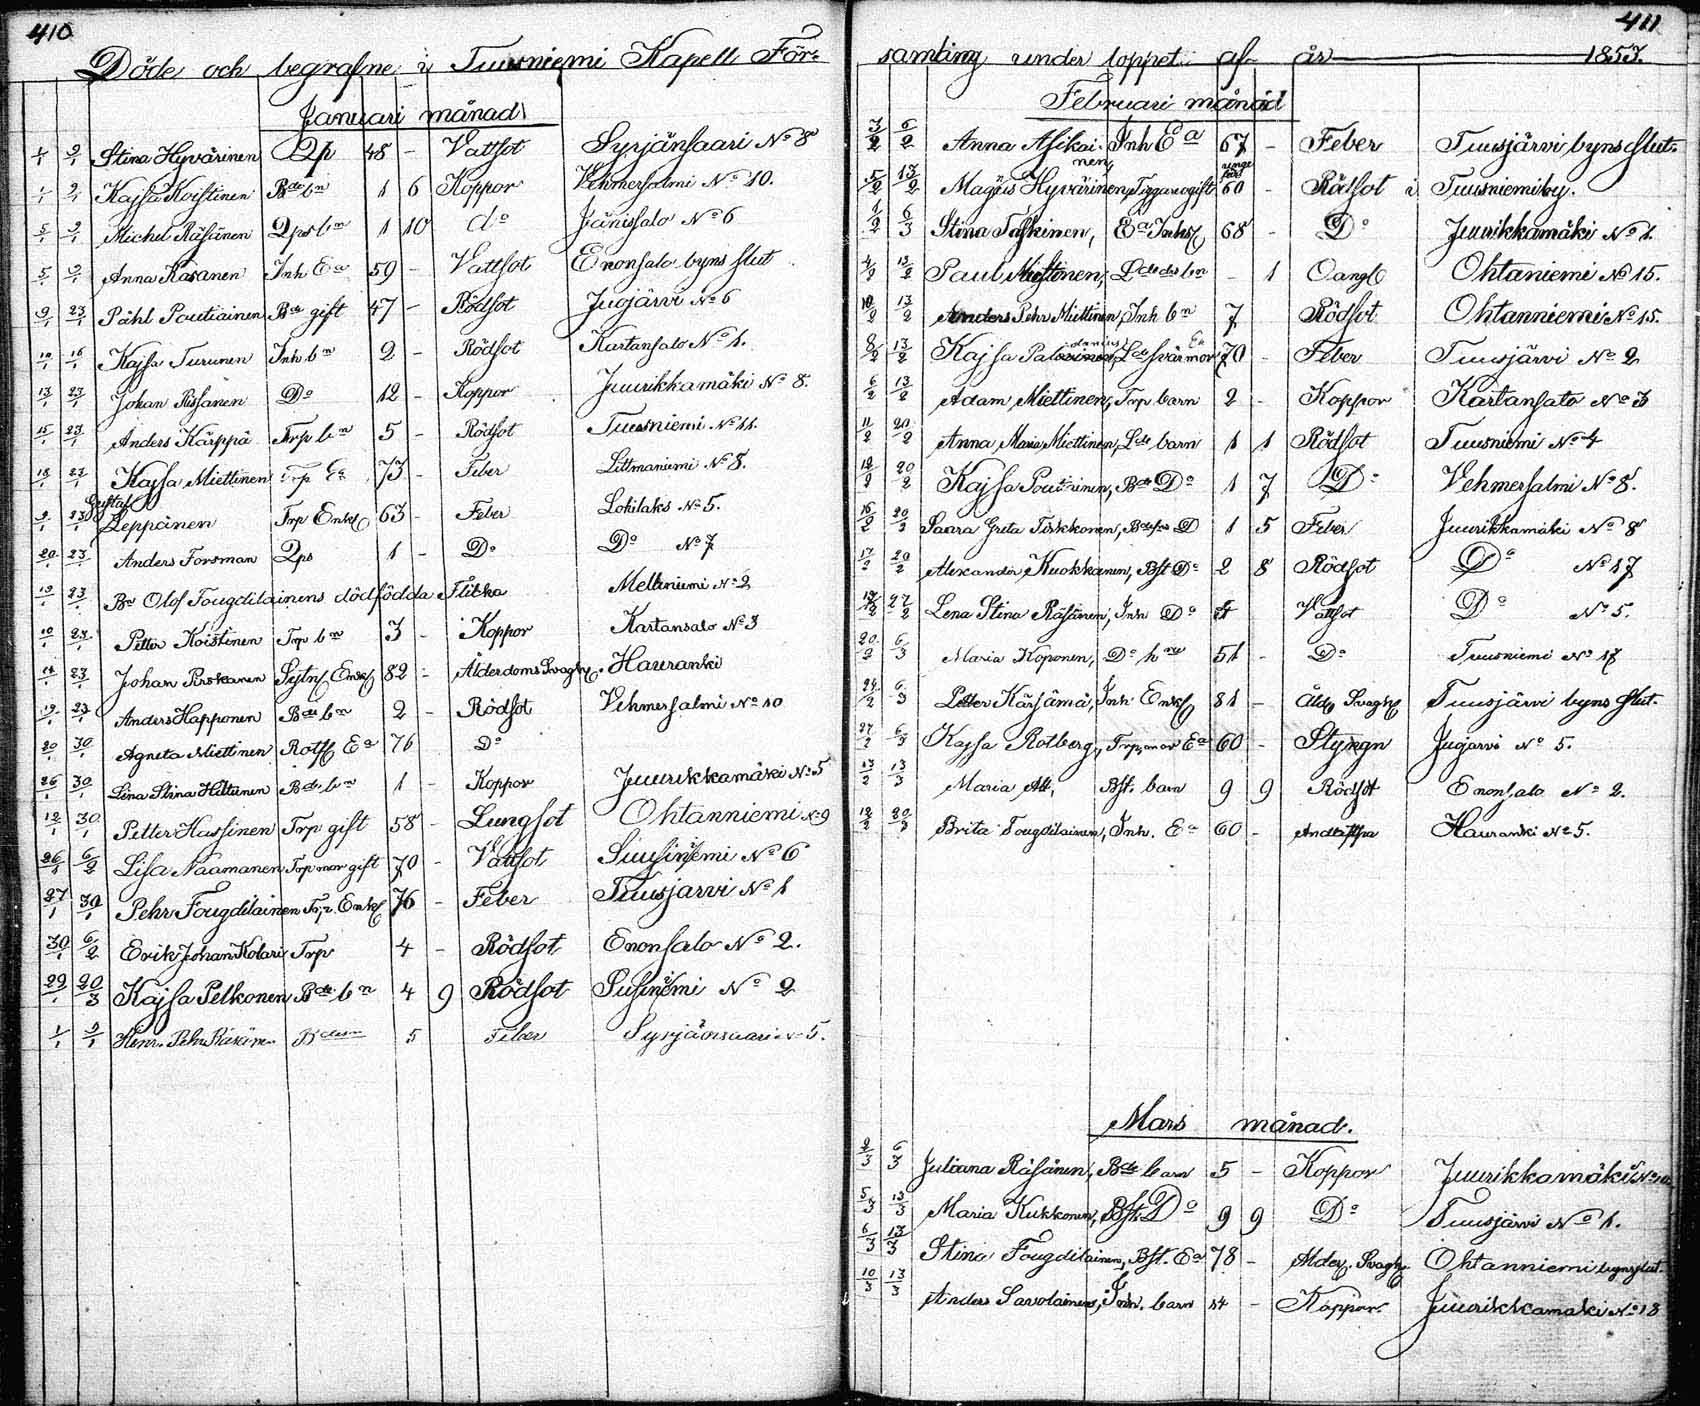 410
Döde och begrafne i Tuusniemi Kapell För-
Januari månad
1/1 2/1 Stina Hyvärinen Qp 48 - Vattsot Syrjänsaari No 8
1/1 2/1 Kajsa Koistinen Bde bn 1 6 Koppor Vehmersalmi No 10.
5/1 9/1 Michel Räsänen Qps bn 1 10 do Jänissalo No 6
5/1 9/1 Anna Kasanen Inh Ea 59 - Vattsot Enonsalo byns slut
9/1 23/1 Påhl Poutiainen Bde gift 47 - Rödsot Jugjärvi No 6
10/1 16/1 Kajsa Turunen Inh bn 2 - Rödsot Kartansalo No 1.
13/1 23/1 Johan Rissanen Do 12 - Koppor Juurikkamäki No 8.
15/1 23/1 Anders Kärppä Trp bn 5 - Rödsot Tuusniemi No 11.
18/1 23/1 Kajsa Miettinen Trp Ea 73 - Feber Littmaniemi No 8.
9/1 23/1 Gustaf Leppänen Trp Enkl 63 - Feber Lokilaks No 5.
20/1 23/1 Anders Forsman Qps 1 - Do Do No 7
19/1 23/1 Be Olof Fougdilainens dödfödda Flicka Melttiniemi No 2
10/1 23/1 Petter Koistinen Trp bn 3 - Koppor Kartansalo No 3
14/1 23/1 Johan Puskanen Sytn Enkl 82 - Ålderdoms Svaghet Hauranki
19/1 23/1 Anders Happonen Bde bn 2 - Rödsot Vehmersalmi No 10
20/1 30/1 Agneta Miettinen Rotf Ea 76 - Do
26/1 30/1 Lena Stina Hiltunen Bde bn 1 - Koppor Juurikkamäki No 5
12/1 30/1 Petter Hassinen Trp gift 58 - Lungsot Ohtanniemi No 9
26/1 6/2 Lisa Naamanen Trp mor gift 70 - Vattsot Suusiniemi No 6
27/1 30/1 Pehr Fougdilainen Trp. Enkl 76 - Feber Tuusjarvi No 1
30/1 6/2 Erik Johan Kolari Trp 4 - Rödsot Enonsalo No 2.
29/1 20/3 Kajsa Pelkonen Bde bn 4 9 Rödsot Susiniemi No 2
1/1 9/1 Henr. Pehr Räsänen 5 Feber Syrjänsaari No 5.
411
samling under loppet af år 1853.
Februari månad
3/2 6/2 Anna Asikainen, Inh Ea 67 - Feber Tuusjärvi byns slut.
5/2 13/2 Magnus Hyvärinen, Tiggare ogift 60 - Rödsot i Tuusniemi by.
1/2 6/3 Stina Taskinen, Ea Inhs 68 - Do Juurikkamäki No 1.
4/2 13/2 Paul Miettinen, Ldedes bn - 1 Oangf Ohtaniemi No 15.
10/2 13/2 Anders Pehr Miettinen, Inh bn 7 Rödsot Ohtanniemi No 15.
8/2 13/2 Kajsa Lde svärmor Ea 70 - Feber Tuusjärvi No 2
6/2 13/2 Adam Miettinen, Trp barn 2 - Koppor Kartansalo No 3
11/2 20/2 Anna Maria Miettinen, Lde barn 1 1 Rödsot Tuusniemi No 4
12/2 20/2 Kajsa Poutiainen, Bde Do 1 7 Do Vehmersalmi No 8.
16/2 20/2 Saara Greta Tirkkonen, Bdes D 1 5 Feber Juurikkamäki No 8
17/2 20/2 Alexander Kuokkanen, Bst Do 2 8 Rödsot Do No 17
19/2 27/2 Lena Stina Räsänen, Inh Do 4 Vattsot Do No 5.
20/2 6/3 Maria Koponen, Do hru 51 - Do Tuusniemi No 17
24/2 6/3 Petter Kärsämä, Inh Enkl 81 - Åld. Svagh Tuusjärvi byns slut.
27/2 6/3 Kajsa Rotberg, Trp, mor Ea 60 - Styngn Jugjarvi No 5.
13/2 13/3 Maria Att, Bst. barn 9 9 Rödsot Enonsalo No 2.
12/2 20/3 Brita Fougdilainen, Inh. Ea 60 - Andtäppa Hauranki No 5.
Mars månad.
2/3 6/3 Juliana Räsänen, Bde barn 5 - Koppor Juurikkamäki
5/3 13/3 Maria Kukkonen, Bst. Do 9 9 Do Tuusjärvi No 1.
6/3 13/3 Stina Fougdilainen, Bst. Ea 78 - Alder. Svagh. Ohtanniemi byns slut.
10/3 13/3 Anders Savolainen, Inh. barn 14 - Koppor Juurikkamaki No 18